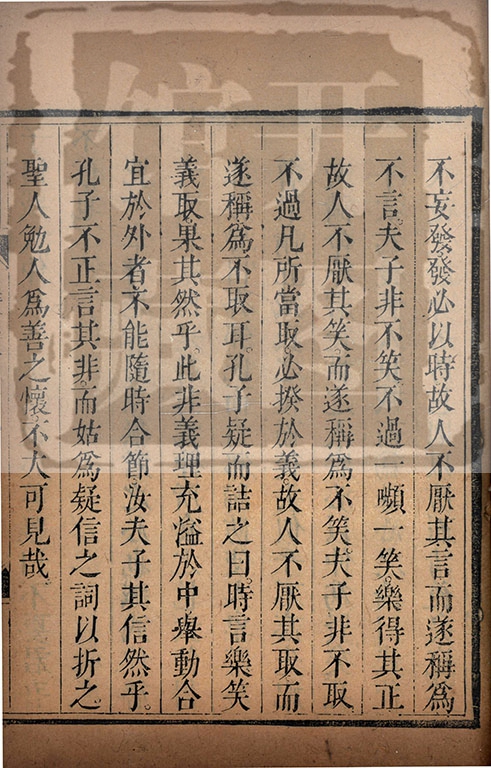 不妄發發必以時故人不厭其言而遂稱為
不言夫子非不笑不過一嚬一笑樂得其正
故人不厭其笑而遂稱為不笑夫子非不取
不過凡所當取必揆於義故人不厭其取而
遂稱為不取耳孔子疑而詰之曰時言樂笑
義取果其然乎此非義理充溢於中舉動合
宜於外者不能隨時合節汝夫子其信然乎
孔子不正言其非而姑為疑信之詞以折之
聖人勉人為善之懷不大可見哉